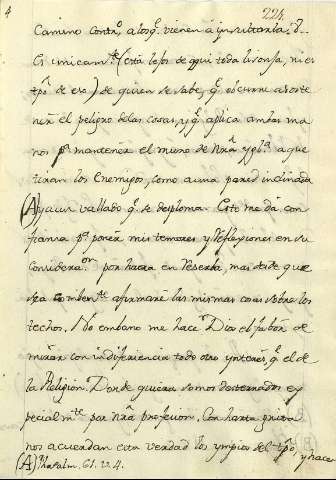 4
224.
camino contr.º a los q.e vienen a insultarla. V.
es unicam.te (està lejos de aqui toda lisonja, ni es
tpô de eso) de quien se sabe, q.e ocurre a soste
nèr el peligro de las cosas, y q.e aplica ambas ma
nos p.a mantenèr el muro de Nrâ Ygl.a a que
tiran los Enemigos, como a una pared inclinada
(A) y a un vallado q.e se desploma. Esto me dà con
fianza p.a ponèr mis temores y Reflexiones en su
consideraz.on por haora en Reserba, mas desde que
sea comben.te afirmarè las mismas cosas sobre los
techos. No embano me hace Dios el fabòr de
miràr con indiferencia todo otro ynterès, q.e el de
la Religion. Donde quiera somos desterrados es
pecialm.te por Nrâ profesion. Con harta grima
nos acuerdan esta verdad los ympios del tpô, y hacer
(A) Psalm. 61. v. 4.